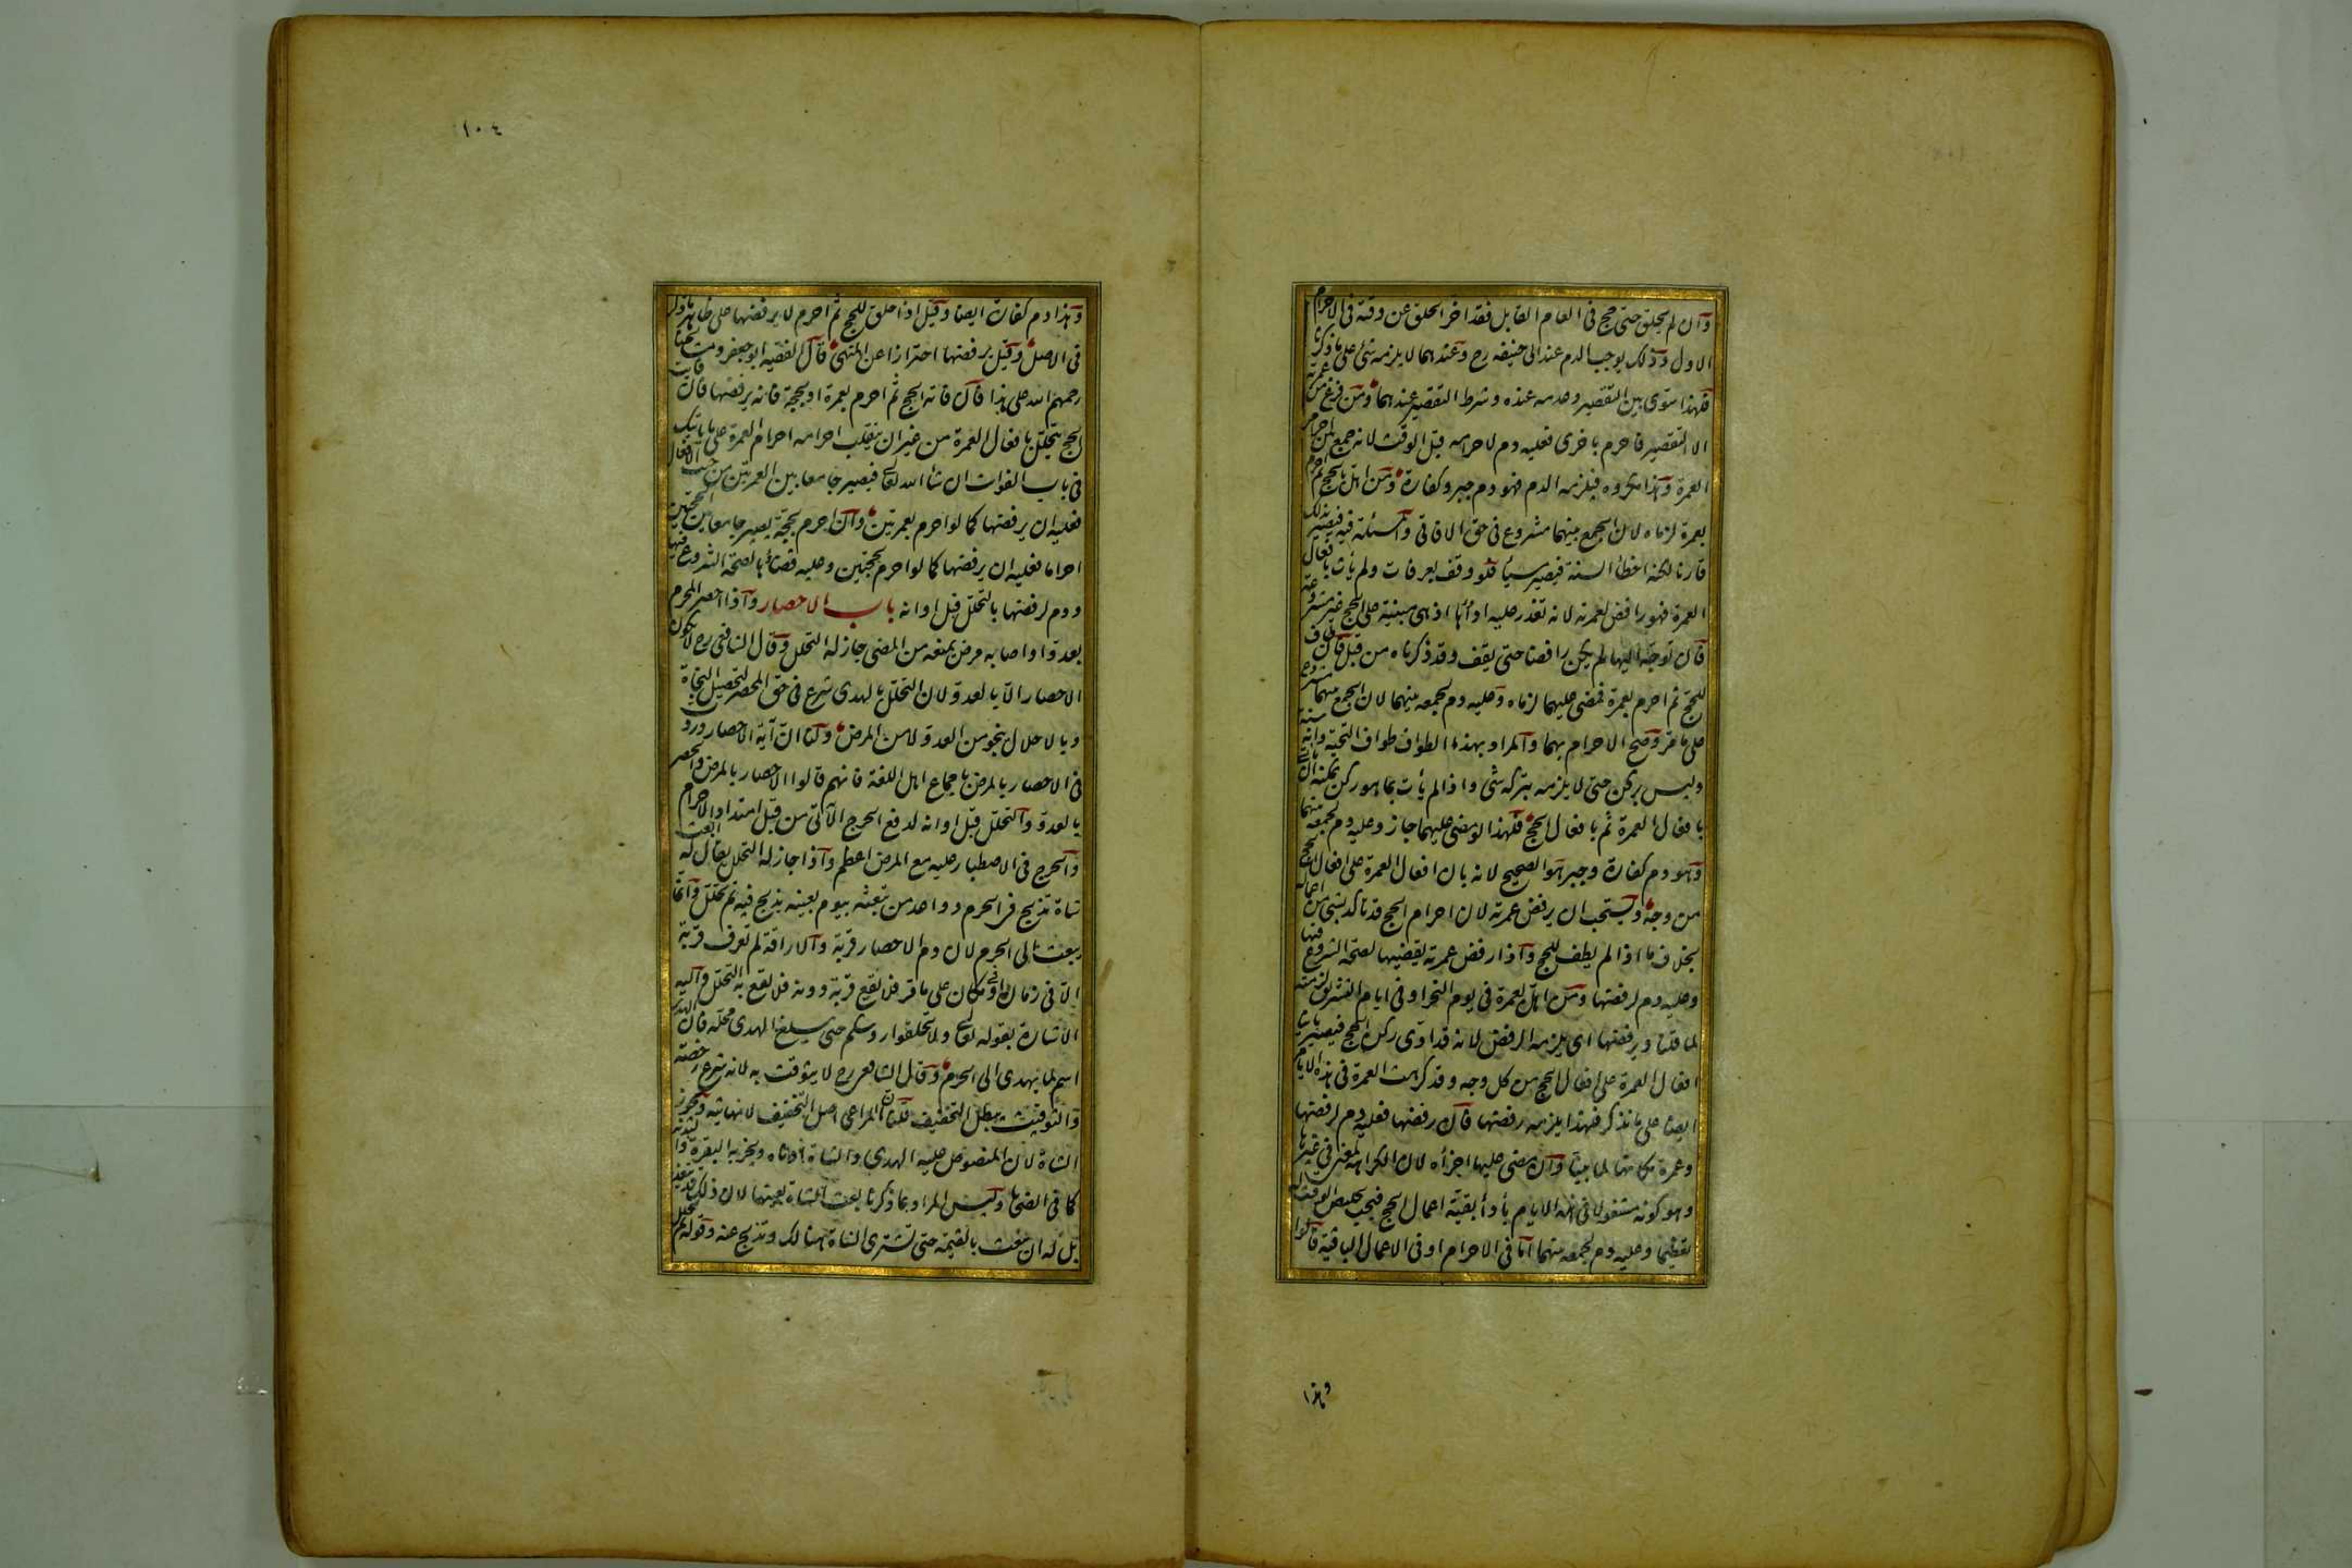 وان لم يحلق حتى حج فى العام القابل فقد اخر الحلق عن وقته فى الاحرام
الاول وذلك يوجب الدم عند ابى حنيفه رح وعندهما لا يلزمه شئ على ما ذكرنا
فلهذا سوى بين التقصير وعدمه عنده وشرط التقصير عندهما ومن فرغ من عمرته
الا التقصير فاحرم باخرى فعليه دم لاحرامه قبل الوقت لانه جمع بين احرامى
العمرة وهذا مكروه فيلزمه الدم فهو دم جبر وكفارة ومن اهل بالحج ثم احرم
بعمرة لزماه لان الجمع بينهما مشروع فى حق الافاقى والمسئلة فيه فيصير بذلك
قارنا لكنه اخطأ السنة فيصير مسيئا فلو وقف بعرفات ولم يأت بافعال
العمرة فهو رافض لعمرته لانه تعذر عليه اداؤها اذ هى مبنية على الحج غير مشروعة
فان توجه اليها لم يكن رافضا حتى يقف وقد ذكرناه من قبل فان طاف
للحج ثم احرم بعمرة فمضى عليهما لزماه وعليه دم لجمعه بينهما لان الجمع بينهما مشروع
على ما مر وصح الاحرام بهما والمراد بهذا الطواف طواف التحية وانه سنة
وليس بركن حتى لا يلزمه بتركه شئ واذا لم يأت بما هو ركن يمكنه ان يأتى
بافعال العمرة ثم بافعال الحج فلهذا لو مضى عليهما جاز وعليه دم لجمعه بينهما
وهو دم كفارة وجبر هو الصحيح لانه بان افعال العمرة على افعال الحج
من وجه ويستحب ان يرفض عمرته لان احرام الحج قد تاكد بشئ من اعماله
بخلاف ما اذا لم يطف للحج واذا رفض عمرته يقضيها لصحة الشروع فيها
وعليه دم لرفضها ومن اهل بعمرة فى يوم النحر او فى ايام التشريق لزمته
لما قلنا ويرفضها اى يلزمه الرفض لانه قد ادى ركن الحج فيصير بانيا
افعال العمرة على افعال الحج من كل وجه وقد كرهت العمرة فى هذه الايام
ايضا على ما نذكر فلهذا يلزمه رفضها فان رفضها فعليه دم لرفضها
وعمرة مكانها لما بينا وان مضى عليها اجزأه لان الكراهة لمعنى فى غيرها
وهو كونه مشغولا فى هذه الايام بأدأ بقية اعمال الحج فيجب تخليص الوقت له
تعظيما وعليه دم لجمعه بينهما اما فى الاحرام او فى الاعمال الباقية قالوا
وهذا
١٠٤
وهذا دم كفارة ايضا وقيل اذا حلق للحج ثم احرم لا يرفضها على ظاهر ما ذكر
فى الاصل وقيل يرفضها احترازا عن النهى قال الفقيه ابو جعفر ومشايخنا
رحمهم الله على هذا فان فاته الحج ثم احرم بعمرة او بحجة فانه يرفضها لان فايت
الحج يتحلل بافعال العمرة من غير ان ينقلب احرامه احرام العمرة على ما ياتيك
فى باب الفوات ان شاء الله تعالى فيصير جامعا بين العمرتين من حيث الافعال
فعليه ان يرفضها كما لو احرم بعمرتين وان احرم بحجة يصير جامعا بين الحجتين
احراما فعليه ان يرفضها كما لو احرم بحجتين وعليه قضاؤها لصحة الشروع فيها
ودم لرفضها بالتحلل قبل اوانه باب الاحصار واذا احصر المحرم
بعدو او اصابه مرض يمنعه من المضى جاز له التحلل وقال الشافعى رح لا يكون
الاحصار الا بالعدو لان التحلل بالهدى شرع فى حق المحصر لتحصيل النجاة
وبالاحلال ينجو من العدو لا من المرض ولنا ان آية الاحصار وردت
فى الاحصار بالمرض باجماع اهل اللغة فانهم قالوا الاحصار بالمرض والحصر
بالعدو والتحلل قبل اوانه لدفع الحرج الآتى من قبل امتداد الاحرام
والحرج فى الاصطبار عليه مع المرض اعظم واذا جاز له التحلل يقال له ابعث
شاة تذبح فى الحرم وواعد من تبعثه بيوم بعينه يذبح فيه ثم تحلل وانما
يبعث الى الحرم لان دم الاحصار قربة والاراقة لم تعرف قربة
الا فى زمان او مكان على ما مر فلا تقع قربة دونه فلا يقع به التحلل واليه
الاشارة بقوله تعالى ولا تحلقوا رؤسكم حتى يبلغ الهدى محله فان الهدى
اسم لما يهدى الى الحرم وقال الشافعى رح لا يتوقت به لانه شرع رخصة
والتوقيت يبطل التخفيف قلنا المراعى اصل التخفيف لا نهايته وتجوز
الشاة لان المنصوص عليه الهدى والشاة ادناه ويجزيه البقرة والبدنة
كما فى الضحايا وليس المراد بما ذكرنا بعث الشاة بعينها لان ذلك قد يتعذر
بل له ان يبعث بالقيمة حتى تشترى الشاة هنالك وتذبح عنه وقوله ثم تحلل